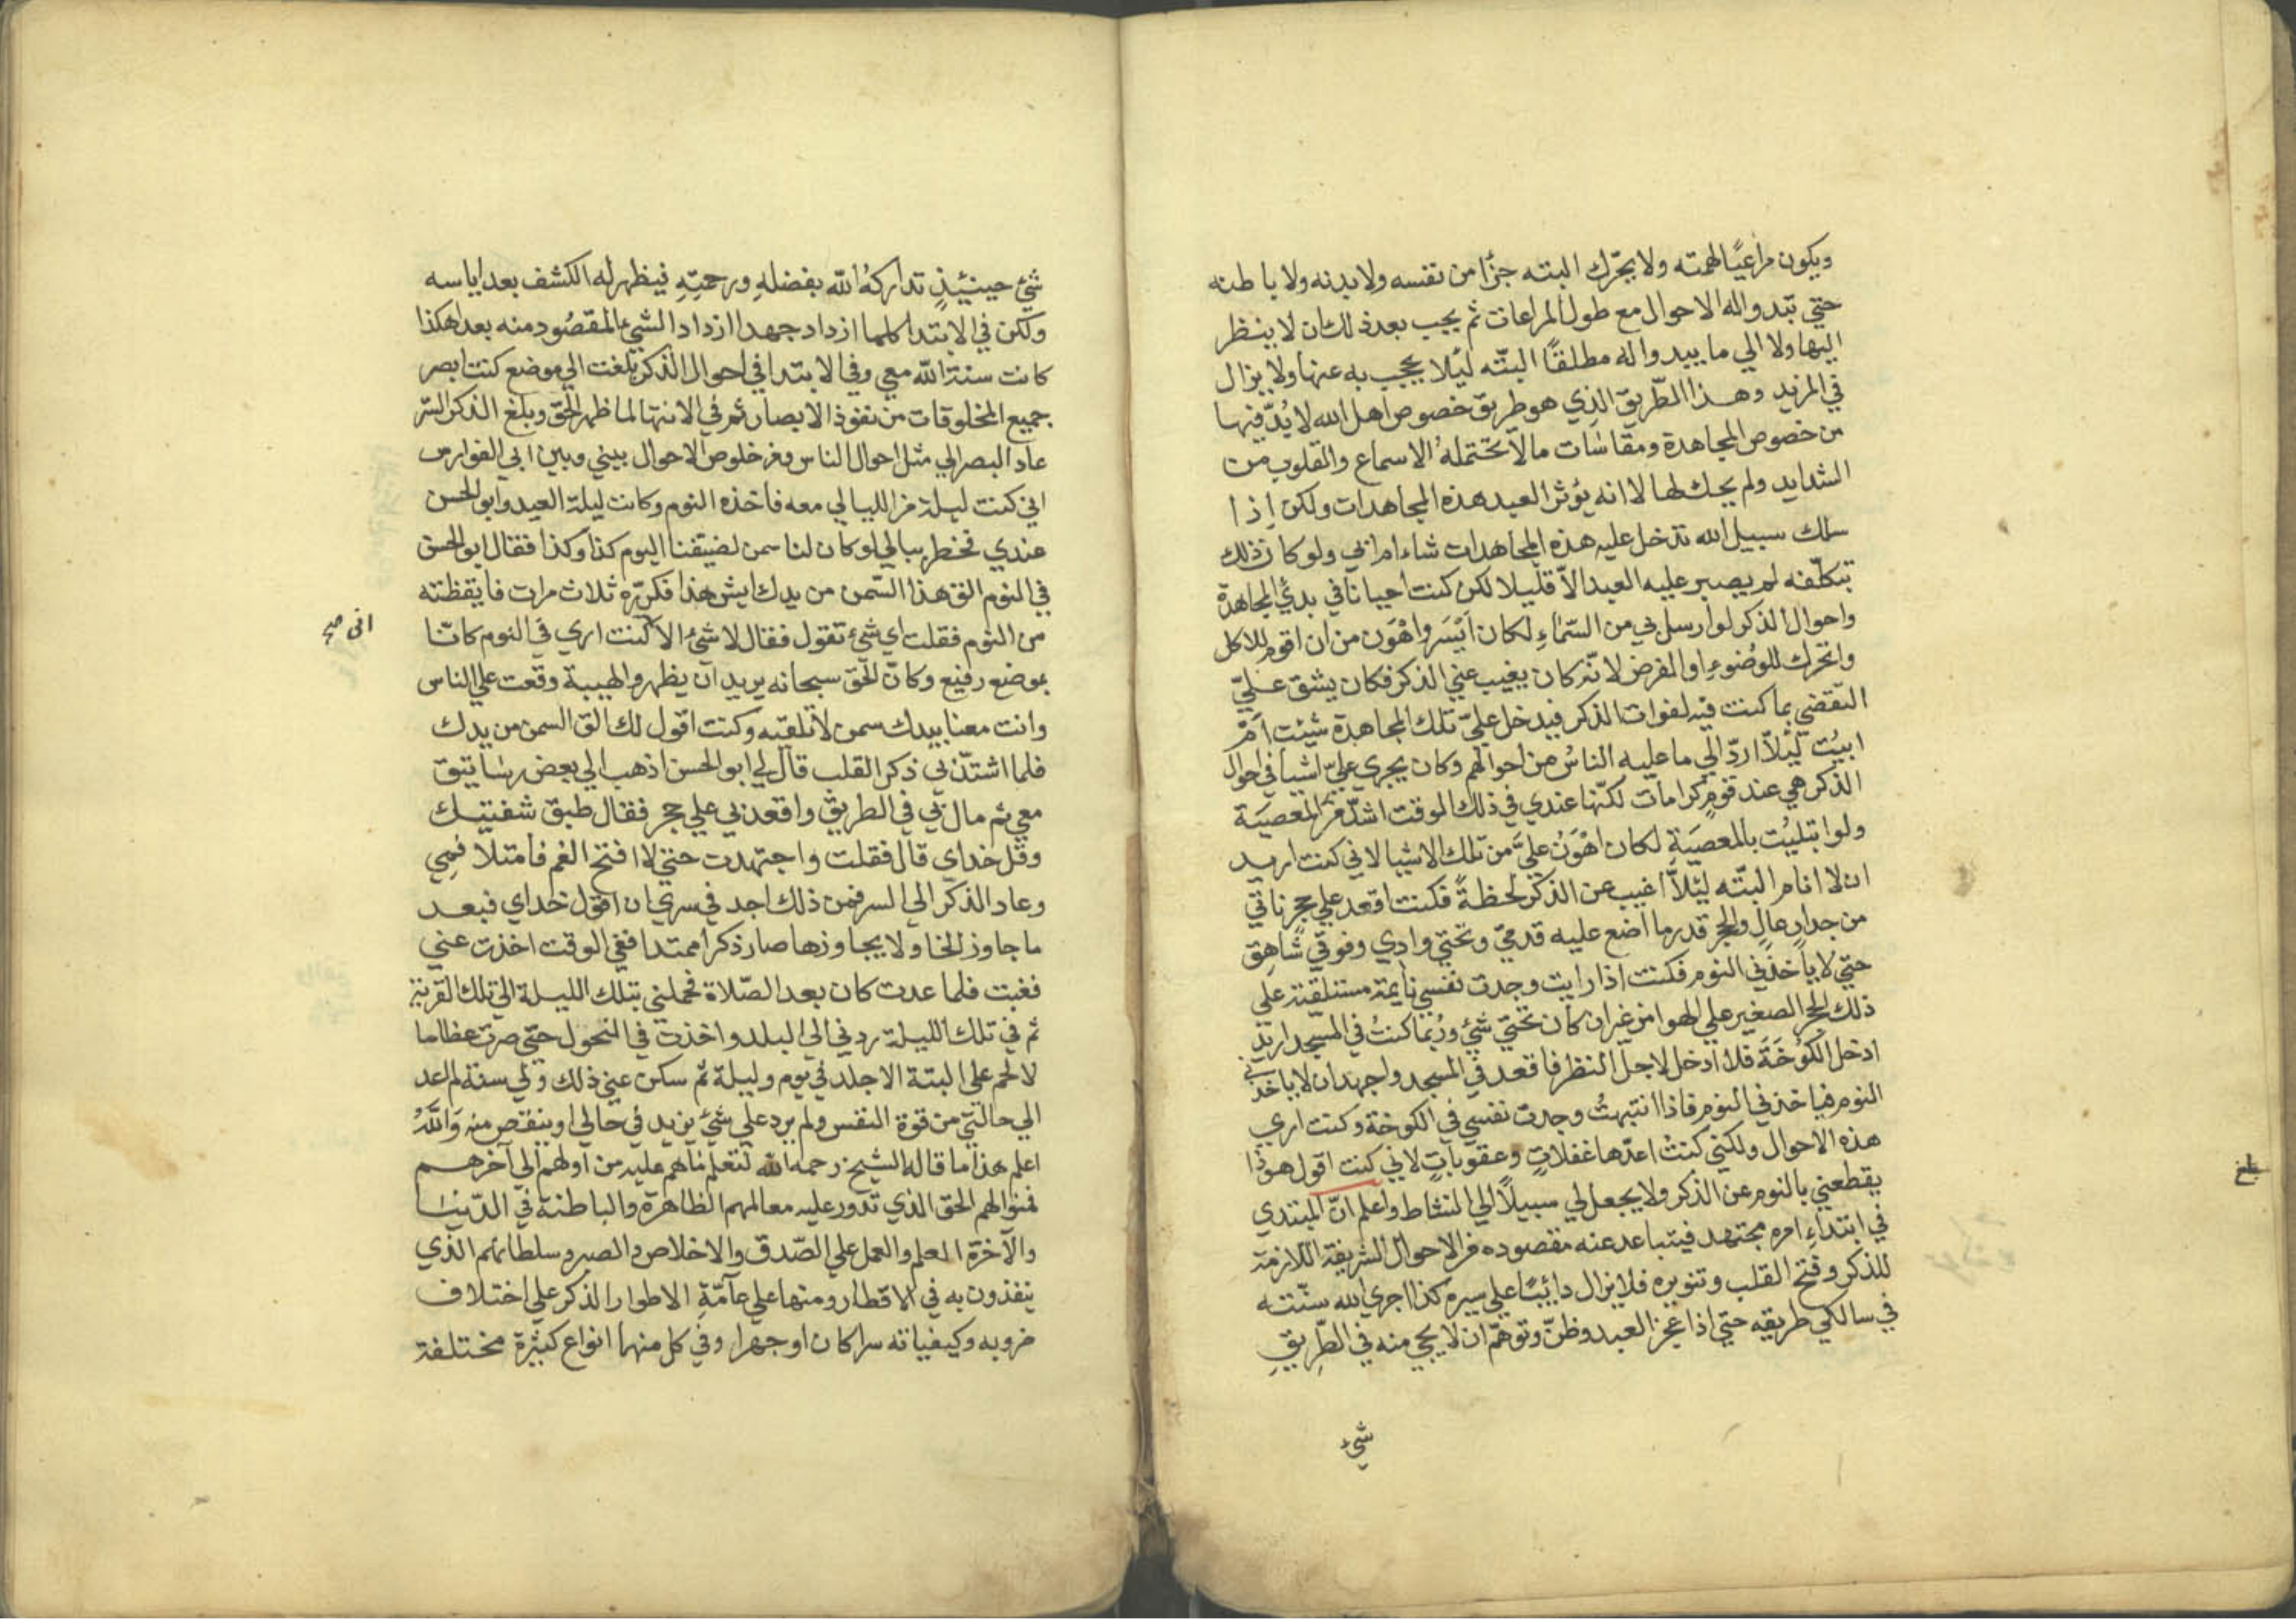 ويكون مراعيًا لهمته ولا يحرّك البتـه جزأً من نفسه ولا بدنه ولا باطنه
حتي تبدواله الاحوال مع طول المراعات ثم يجب بعد ذلك ان لا ينظر
اليها ولا الي ما يبدواله مطلقًا البتّه ليُلا يحجب به عنها ولا يزال
في المزيد وهـذا الطّريق الذي هو طريق خصوص اهل الله لا بُدّ فيها
من خصوص المجاهدة ومقاسات مالا تحتمله الاسماع والقلوب من
الشدايد ولم يحك لها لا انه يؤثر العبد هذه المجاهدات ولكن إذا
سلك سبيل الله تدخل عليه هذه المجاهدات شاء ام ابي ولو كان ذلك
بتكلّفه لم يصبر عليه العبد الاّ قليلا لكن كنت احيانا في بدئي المجاهدة
واحوال الذكر لو ارسل بي من السّماءِ لكان اَيْسَر واهْوَن من ان اقوم للاكل
واتحرك للوضوءِ او الفرض لانّه كان يغيب عني الذكر فكان يشق عـليّ
التقضي بما كنت فيه لفوات الذكر فيدخل عليّ تلك المجاهدة شيئت اَمْ
ابيُت ليُلاّ اردّ الي ما عليه الناسُ من احوالهم وكان يجري عليّ اشيا في احوال
الذكر هي عند قومٍ كرامات لكنّها عندي في ذلك الوقت اشدّ من المعصيَة
ولوا بتليُت بالمعصيَةِ لكان اهْوَنُ عليَّ من تلك الاشيا لاني كنت اريـد
ان لا انام البتّه ليُلاَّ اغيب عن الذكر لحظةً فكنت اقعد علي حجر ناتي
من جدارٍ عالٍ والحجر قدر ما اضع عليه قدميّ وتحتي وادي وفوقي شاهِق
حتي لا ياخذني النوم فكنت اذا رايت وجدت نفسي نايمة مستلقية علي
ذلك الحجر الصغير علي الهوا من غير ان كان تحتي شيُ ورُبّما كنتُ في المسجد اريد
ادخل الكُوخَةَ فلا ادخل لاجل النظر فاقعد في المسجد واجهد ان لا ياخذني
النوم فياخذني النوم فاذا انتبهتُ وجدت نفسي في الكوخة وكنت اري
هذه الاحوال ولكني كنتُ اعدّها غفلاتٍ وعقوباتٍ لاني كنت اقول هوذا
يقطعني بالنوم عن الذكر ولا يجعل لي سبيلاً الي النشاط واعلم انّ المبتدي
في ابتداءِ امره مجتهد فيتباعد عنه مقصوده من الاحوال الشريفة اللازمة
للذكر وفتح القلب وتنويره فلا يزال دائبًا علي سيره كذا اجري الله سنّته
في سالكي طريقه حتي اذا عجز العبد وظنّ وتوهّم ان لا يجي منه في الطّريقِ
شيُ
بلغ
شيُ حينئِذٍ تداركهُ الله بفضلهِ ورحمتِه فيظهر له الكشف بعد اياسه
ولكن في الابتدا كلما ازداد جهدا ازداد الشي المقصُود منه بعدا هكذا
كانت سنة الله معي وفي الابتدا في احوال الذكر بلغت الي موضع كنت ابصر
جميع المخلوقات من نفوذ الابصار ثم في الانتها لما ظهر الحقّ وبلغ الذكر السّر
عاد البصر الي مثل احوال الناس ومن خلوص الاحوال بيني وبين ابي الفوارس
اني كنت ليلة من الليالي معه فاخذه النوم وكانت ليلة العيد وابو الحسن
عندي فخطر ببالي لو كان لنا سمن لضيفنا اليوم كذا وكذا فقال ابو الحسن
في النوم الق هذا السّمن من يدك ايش هذا فكرّره ثلاث مرات فايقظته
من النوم فقلت اي شيُ تقول فقال لا شيُ الا كنت اري في النوم كانّا
اني
بموضع رفيع وكانّ الحق سبحانه يريد ان يظهر والهيبية وقعت علي الناس
وانت معنا بيدك سمن لا تلقيه وكنت اقول لك الق السمن من يدك
فلما اشتدّ بي ذكر القلب قال لي ابو الحسن اذهب الي بعض رساتيق
معي ثم مال بي في الطريق واقعدني علي حجر فقال طبق شفتيـك
وقل خداي قال فقلت واجتهدت حتي لا افتح الفم فامتلا فمِي
وعاد الذكر الي السر فمن ذلك اجد في سري ان اقول خداي فبعـد
ما جاوز الخا ولا يجاوزها صار ذكرا ممتدا ففي الوقت اخذت عني
فغبت فلما عدت كان بعد الصّلاة فحملني بتلك الليلة الي تلك القرية
ثم في تلك الليلة ردني الي البلد واخذت في النحول حتي صرت عظاما
لا لحم علي البتة الا جلد في يوم وليلة ثم سكن عني ذلك ولي سنة لم اعد
الي حالتي من قوة النفس ولم يرد علي شيُ يزيد في حالي او ينقص منه وَاللهُ
اعلم هذا ما قاله الشيخ رحمه الله لتعلم ما هم عليه من اولهم الي آخرهـم
فمنوالهم الحق الذي تدور عليه معالمهم الظاهرة والباطنة في الدّنيَـا
والآخرة العلم والعمل علي الصّدق والاخلاص والصبر وسلطانهم الذي
ينفذون به في الاقطار ومنها علي عآمّةِ الاطوار الذكر علي اختلاف
ضروبه وكيفياته سرا كان او جهرا وفي كل منهما انواع كثيرة مختلفة